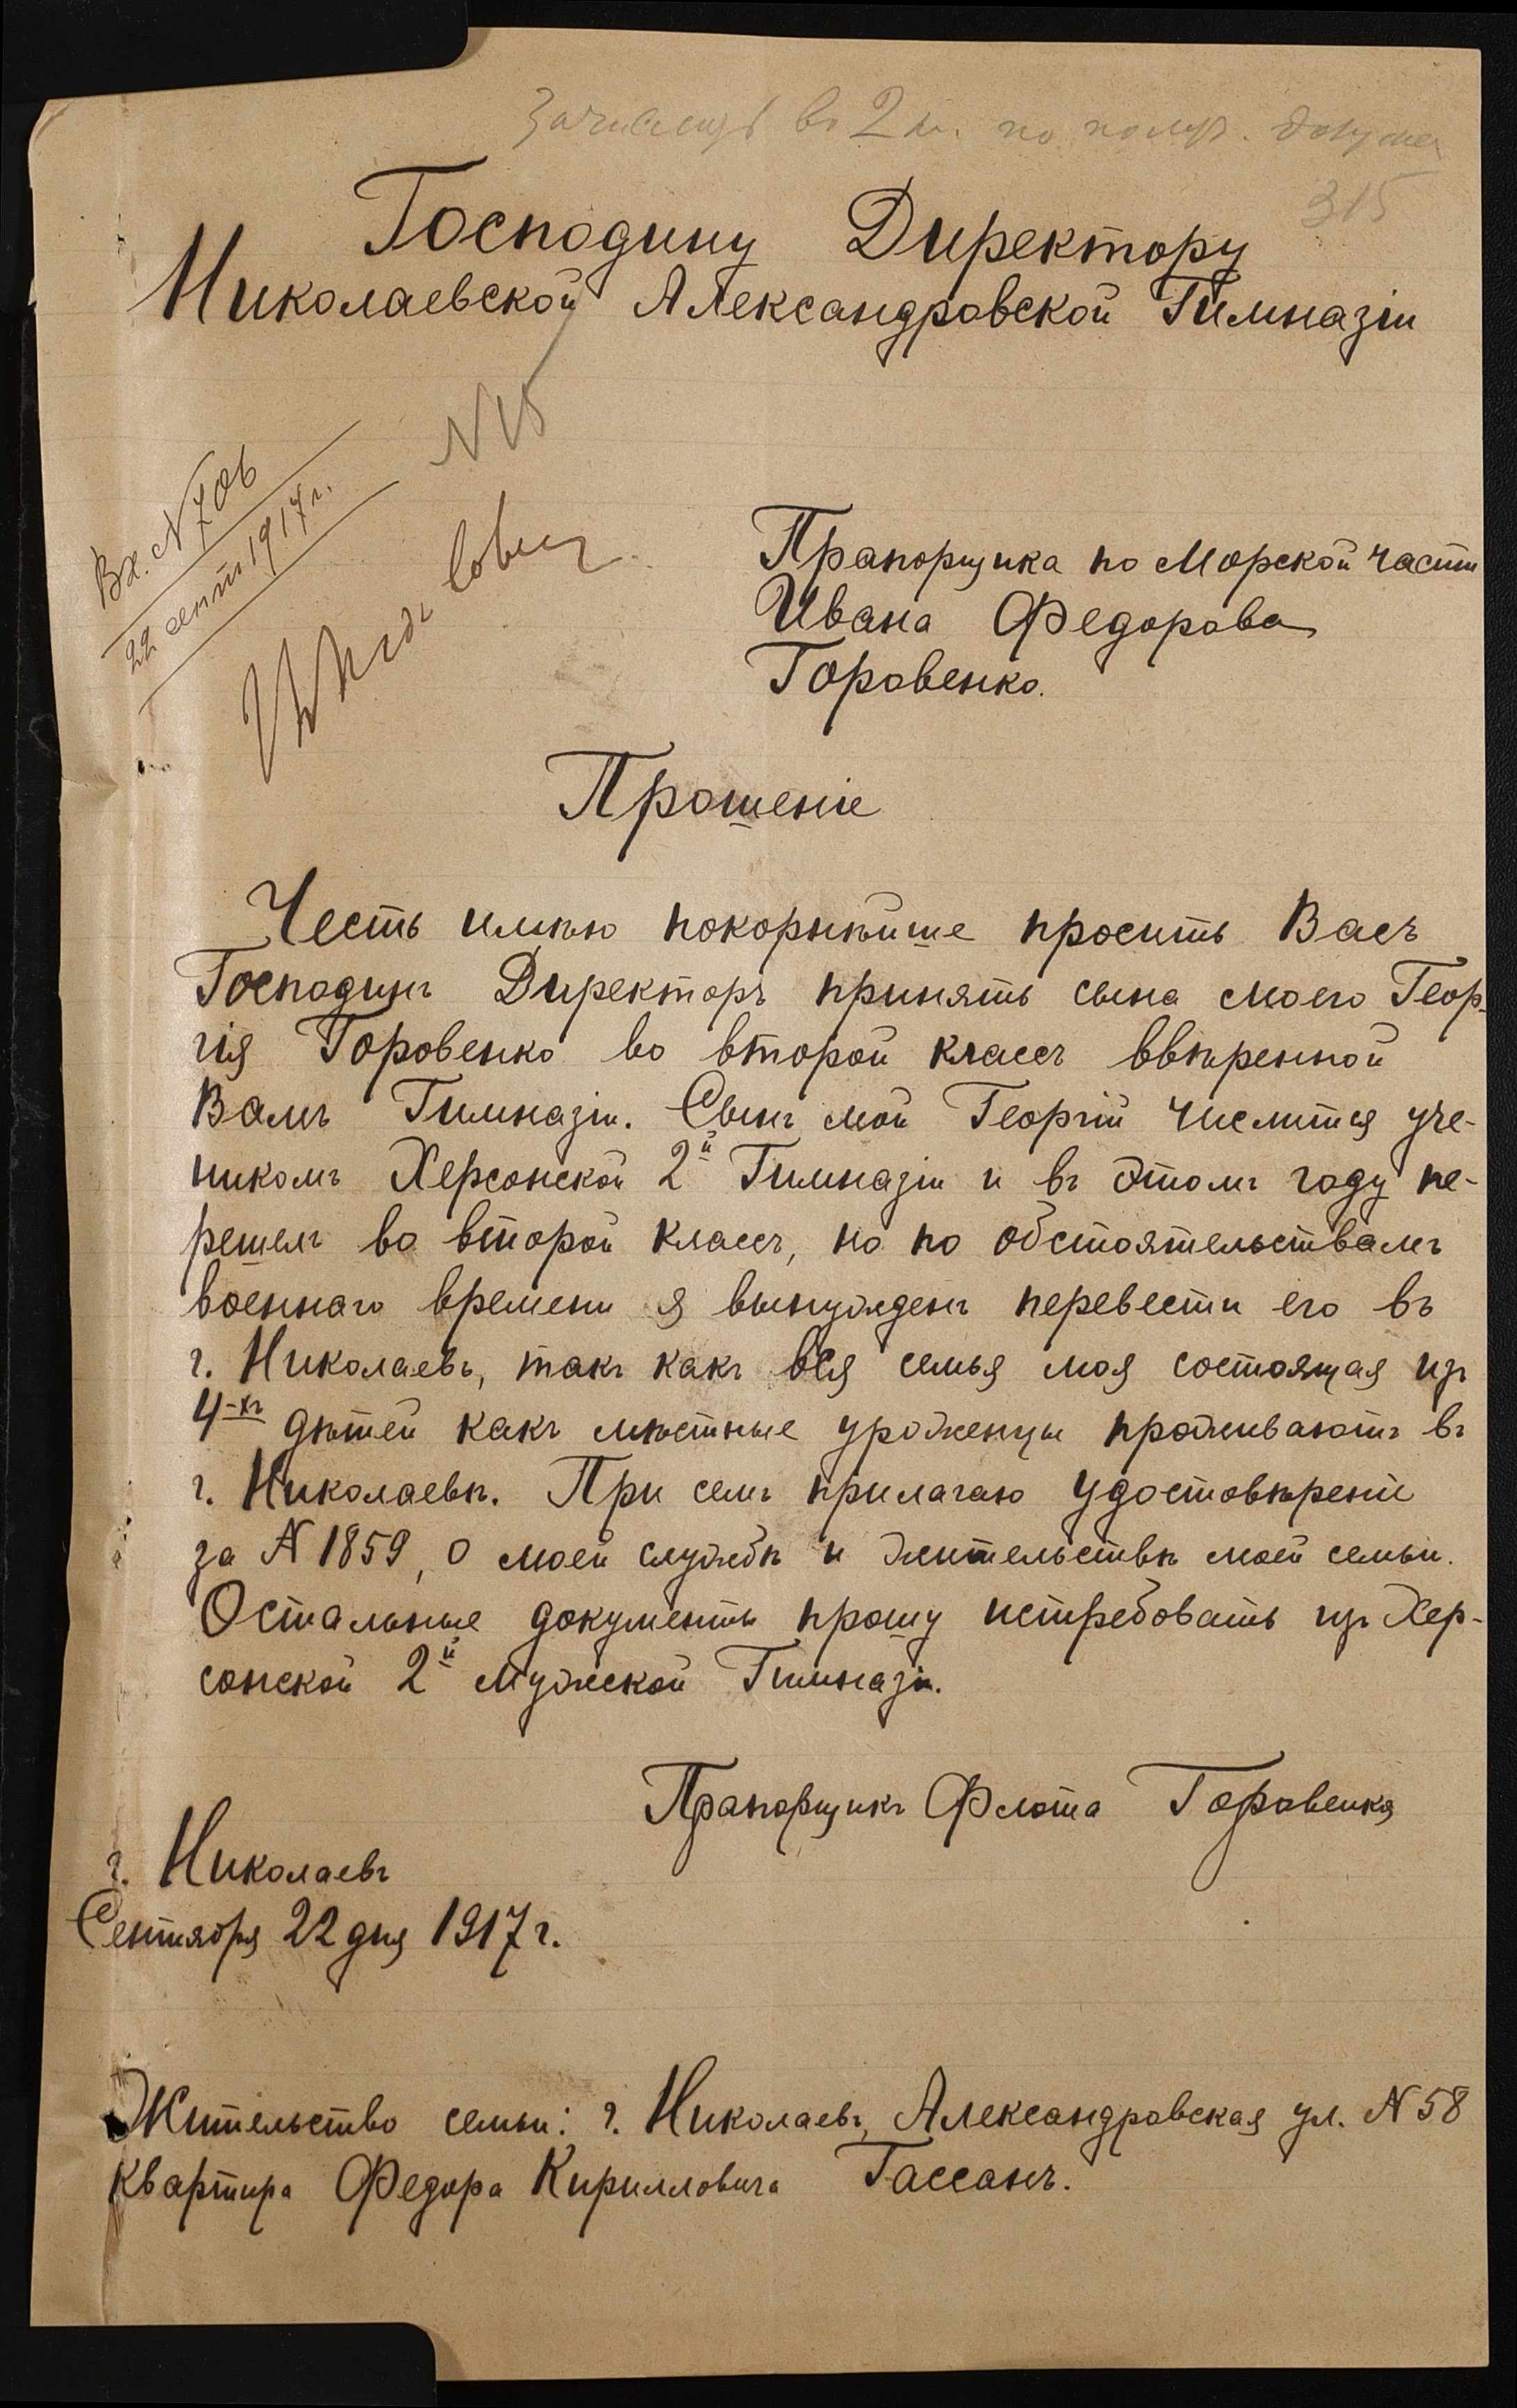 въ 2 кл. по
315
Господину Директору
Николаевской Александровской Гимназіи
N 15
Вх. N 706
22 сент. 1917 г.
Прапорщика по Морской части
Ивана Федорова
Горовенко.
Прошеніе
Честь имѣю покорнѣйше просить Васъ
Господинъ Директоръ принять сына моего Геор-
гія Горовенко во второй классъ ввѣренной
Вамъ Гимназіи. Сынъ мой Георгій числится уче-
никомъ Херсонской 2й Гимназіи и въ этомъ году пе-
решелъ во второй классъ, но по обстоятельствамъ
военнаго времени я вынужденъ перевести его въ
г. Николаевъ, такъ какъ вся семья моя состоящая изъ
4-хъ дѣтей какъ мѣстные уроженцы проживаютъ въ
г. Николаевѣ. При семъ прилагаю удостовѣреніе
за N 1859, о моей службѣ и жительствѣ моей семьи.
Остальные документы прошу истребовать изъ Хер-
сонской 2й мужской Гимназіи.
Прапорщикъ Флота Горовенко
г. Николаевъ
Сентября 22 дня 1917 г.
Жительство семьи: г. Николаевъ, Александровская ул. N 58
квартира Федора Кирилловича Гассанъ.